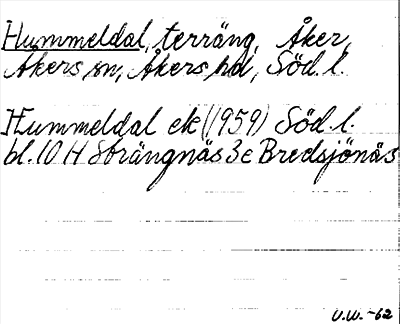 Hummeldal, terräng, Åker,
Åkers sn, Åkers hd, Söd.l.
Hummeldal ek (1959) Söd.l.
bl. 10 H Strängnäs 3 c Bredsjönäs
U.W. -62